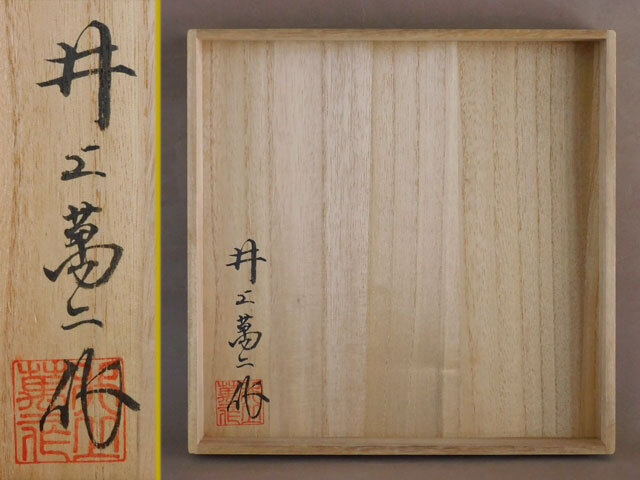 井上萬二作
井上萬二作